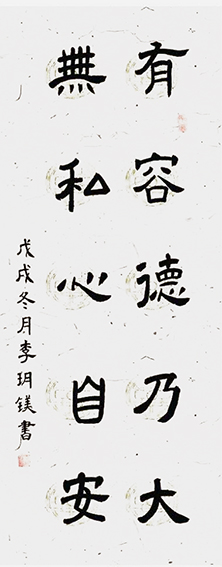 有容德乃大
無私心自安
戊戌冬月李玥鎂書